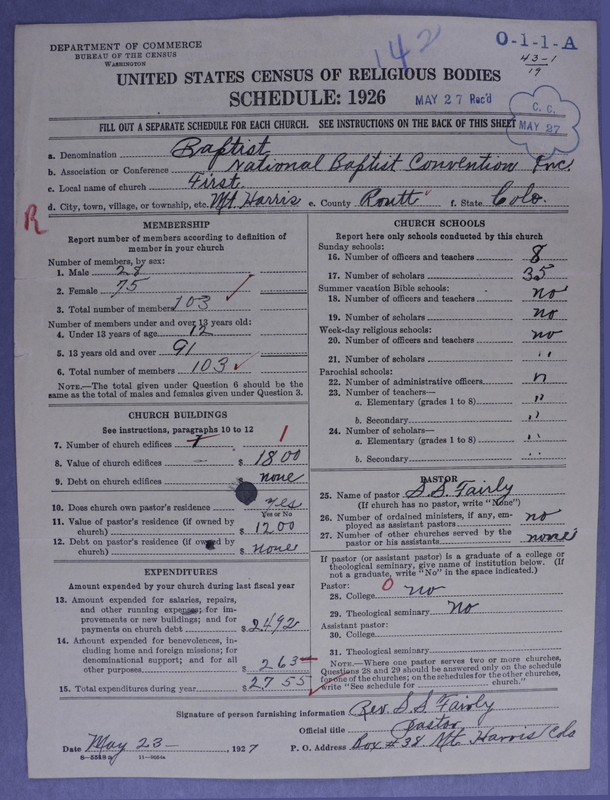 DEPARTMENT OF COMMERCE
BUREAU OF THE CENSUS
WASHINGTON
142
O-1-1-A
43-1
19
UNITED STATES CENSUS OF RELIGIOUS BODIES
SCHEDULE: 1926
MAY 27 Rec'd
C. C.
MAY 27
FILL OUT A SEPARATE SCHEDULE FOR EACH CHURCH. SEE INSTRUCTIONS ON THE BACK OF THIS SHEET
a. Denomination Baptist
b. Association or Conference National Baptist Convention Inc.
c. Local name of church First
d. City, town, village, or township, etc. Mt. Harris e. County Routt f. State Colo.
R
MEMBERSHIP
Report number of members according to definition of
member in your church
Number of members, by sex:
1. Male 28
2. Female 75
3. Total number of members 103
Number of members under and over 13 years old:
4. Under 13 years of age 12
5. 13 years old and over 91
6. Total number of members 103
NOTE.—The total given under Question 6 should be
same as the total of males and females given under Question 3.
CHURCH BUILDINGS
See instructions, paragraphs 10 to 12
7. Number of church edifices 1
8. Value of church edifices $ 1800
9. Debt on church edifices $ none
10. Does church own pastor's residence yes
Yes or No
11. Value of pastor's residence (if owned by
church) $ 1200
12. Debt on pastor's residence (if owned by
church) $ none
EXPENDITURES
Amount expended by your church during last fiscal year
13. Amount expended for salaries, repairs,
and other running expenses; for im-
provements or new buildings; and for
payments on church debt $ 2492
14. Amount expended for benevolences, in-
cluding home and foreign missions; for
denominational support; and for all
other purposes $ 263
15. Total expenditures during year $ 2755
CHURCH SCHOOLS
Report here only schools conducted by this church
Sunday schools:
16. Number of officers and teachers 8
17. Number of scholars 35
Summer vacation Bible schools:
18. Number of officers and teachers no
19. Number of scholars no
Week-day religious schools:
20. Number of officers and teachers no
21. Number of scholars "
Parochial schools:
22. Number of administrative officers "
23. Number of teachers—
a. Elementary (grades 1 to 8) "
b. Secondary "
24. Number of scholars—
a. Elementary (grades 1 to 8) "
b. Secondary "
PASTOR
25. Name of pastor S.S. Fairly
(If church has no pastor, write "None")
26. Number of ordained ministers, if any, em-
ployed as assistant pastors no
27. Number of other churches served by the
pastor or his assistants none
If pastor (or assistant pastor) is a graduate of a college or
theological seminary, give name of institution below. (If
not a graduate, write "No" in the space indicated.)
Pastor: 0
28. College no
29. Theological seminary no
Assistant pastor:
30. College
31. Theological seminary
NOTE.—Where one pastor serves two or more churches,
Questions 28 and 29 should be answered only on the schedule
for one of the churches; on the schedules for the other churches,
write "See schedule for church."
Signature of person furnishing information Rev. S.S. Fairly
Official title Pastor
Date May 23 —, 1927 P. O. Address Box #38. Mt. Harris Colo